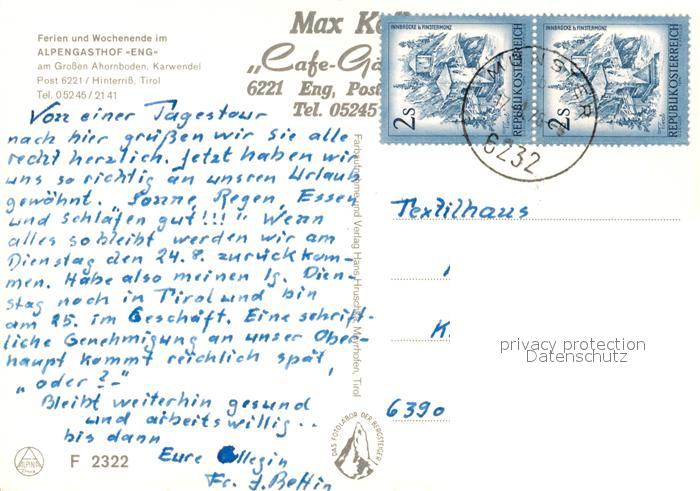 Ferien und Wochenende im
ALPENGASTHOF »ENG«
am Großen Ahornboden, Karwendel
Post 6221 / Hinterriß, Tirol
Tel. 05245 / 21 41
Max
„Cafe-
6221 Eng, Post
Tel. 05245
INNBRÜCKE b. FINSTERMÜNZ
2 S
REPUBLIK ÖSTERREICH
INNBRÜCKE b. FINSTERMÜNZ
2 S
REPUBLIK ÖSTERREICH
MÜNSTER
6232
Von einer Tagestour
nach hier grüßen wir Sie alle
recht herzlich. Jetzt haben wir
uns so richtig an unsren Urlaub
gewöhnt. "Sonne, Regen, Essen
und Schlafen gut!!!" Wenn
alles so bleibt werden wir am
Dienstag den 24.8. zurückkom-
men. Habe also meinen lg. Dien-
stag noch in Tirol und bin
am 25. im Geschäft. Eine schrift-
liche Genehmigung an unser Ober-
haupt kommt reichlich spät,
„oder ?-"
Bleibt weiterhin gesund
und arbeitswillig..
bis dann
Eure Kollegin
Fr. J.
Farbaufnahme und Verlag Hans Hruschka, Mayrhofen, Tirol
Textilhaus
K
6390
privacy protection
Datenschutz
DAS FOTOLABOR DER BERGSTEIGER
ALPINA
F 2322